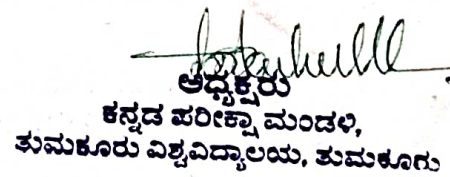 ಅಧ್ಯಕ್ಷರು
ಕನ್ನಡ ಪರೀಕ್ಷಾ ಮಂಡಳಿ,
ತುಮಕೂರು ವಿಶ್ವವಿದ್ಯಾಲಯ, ತುಮಕೂರು